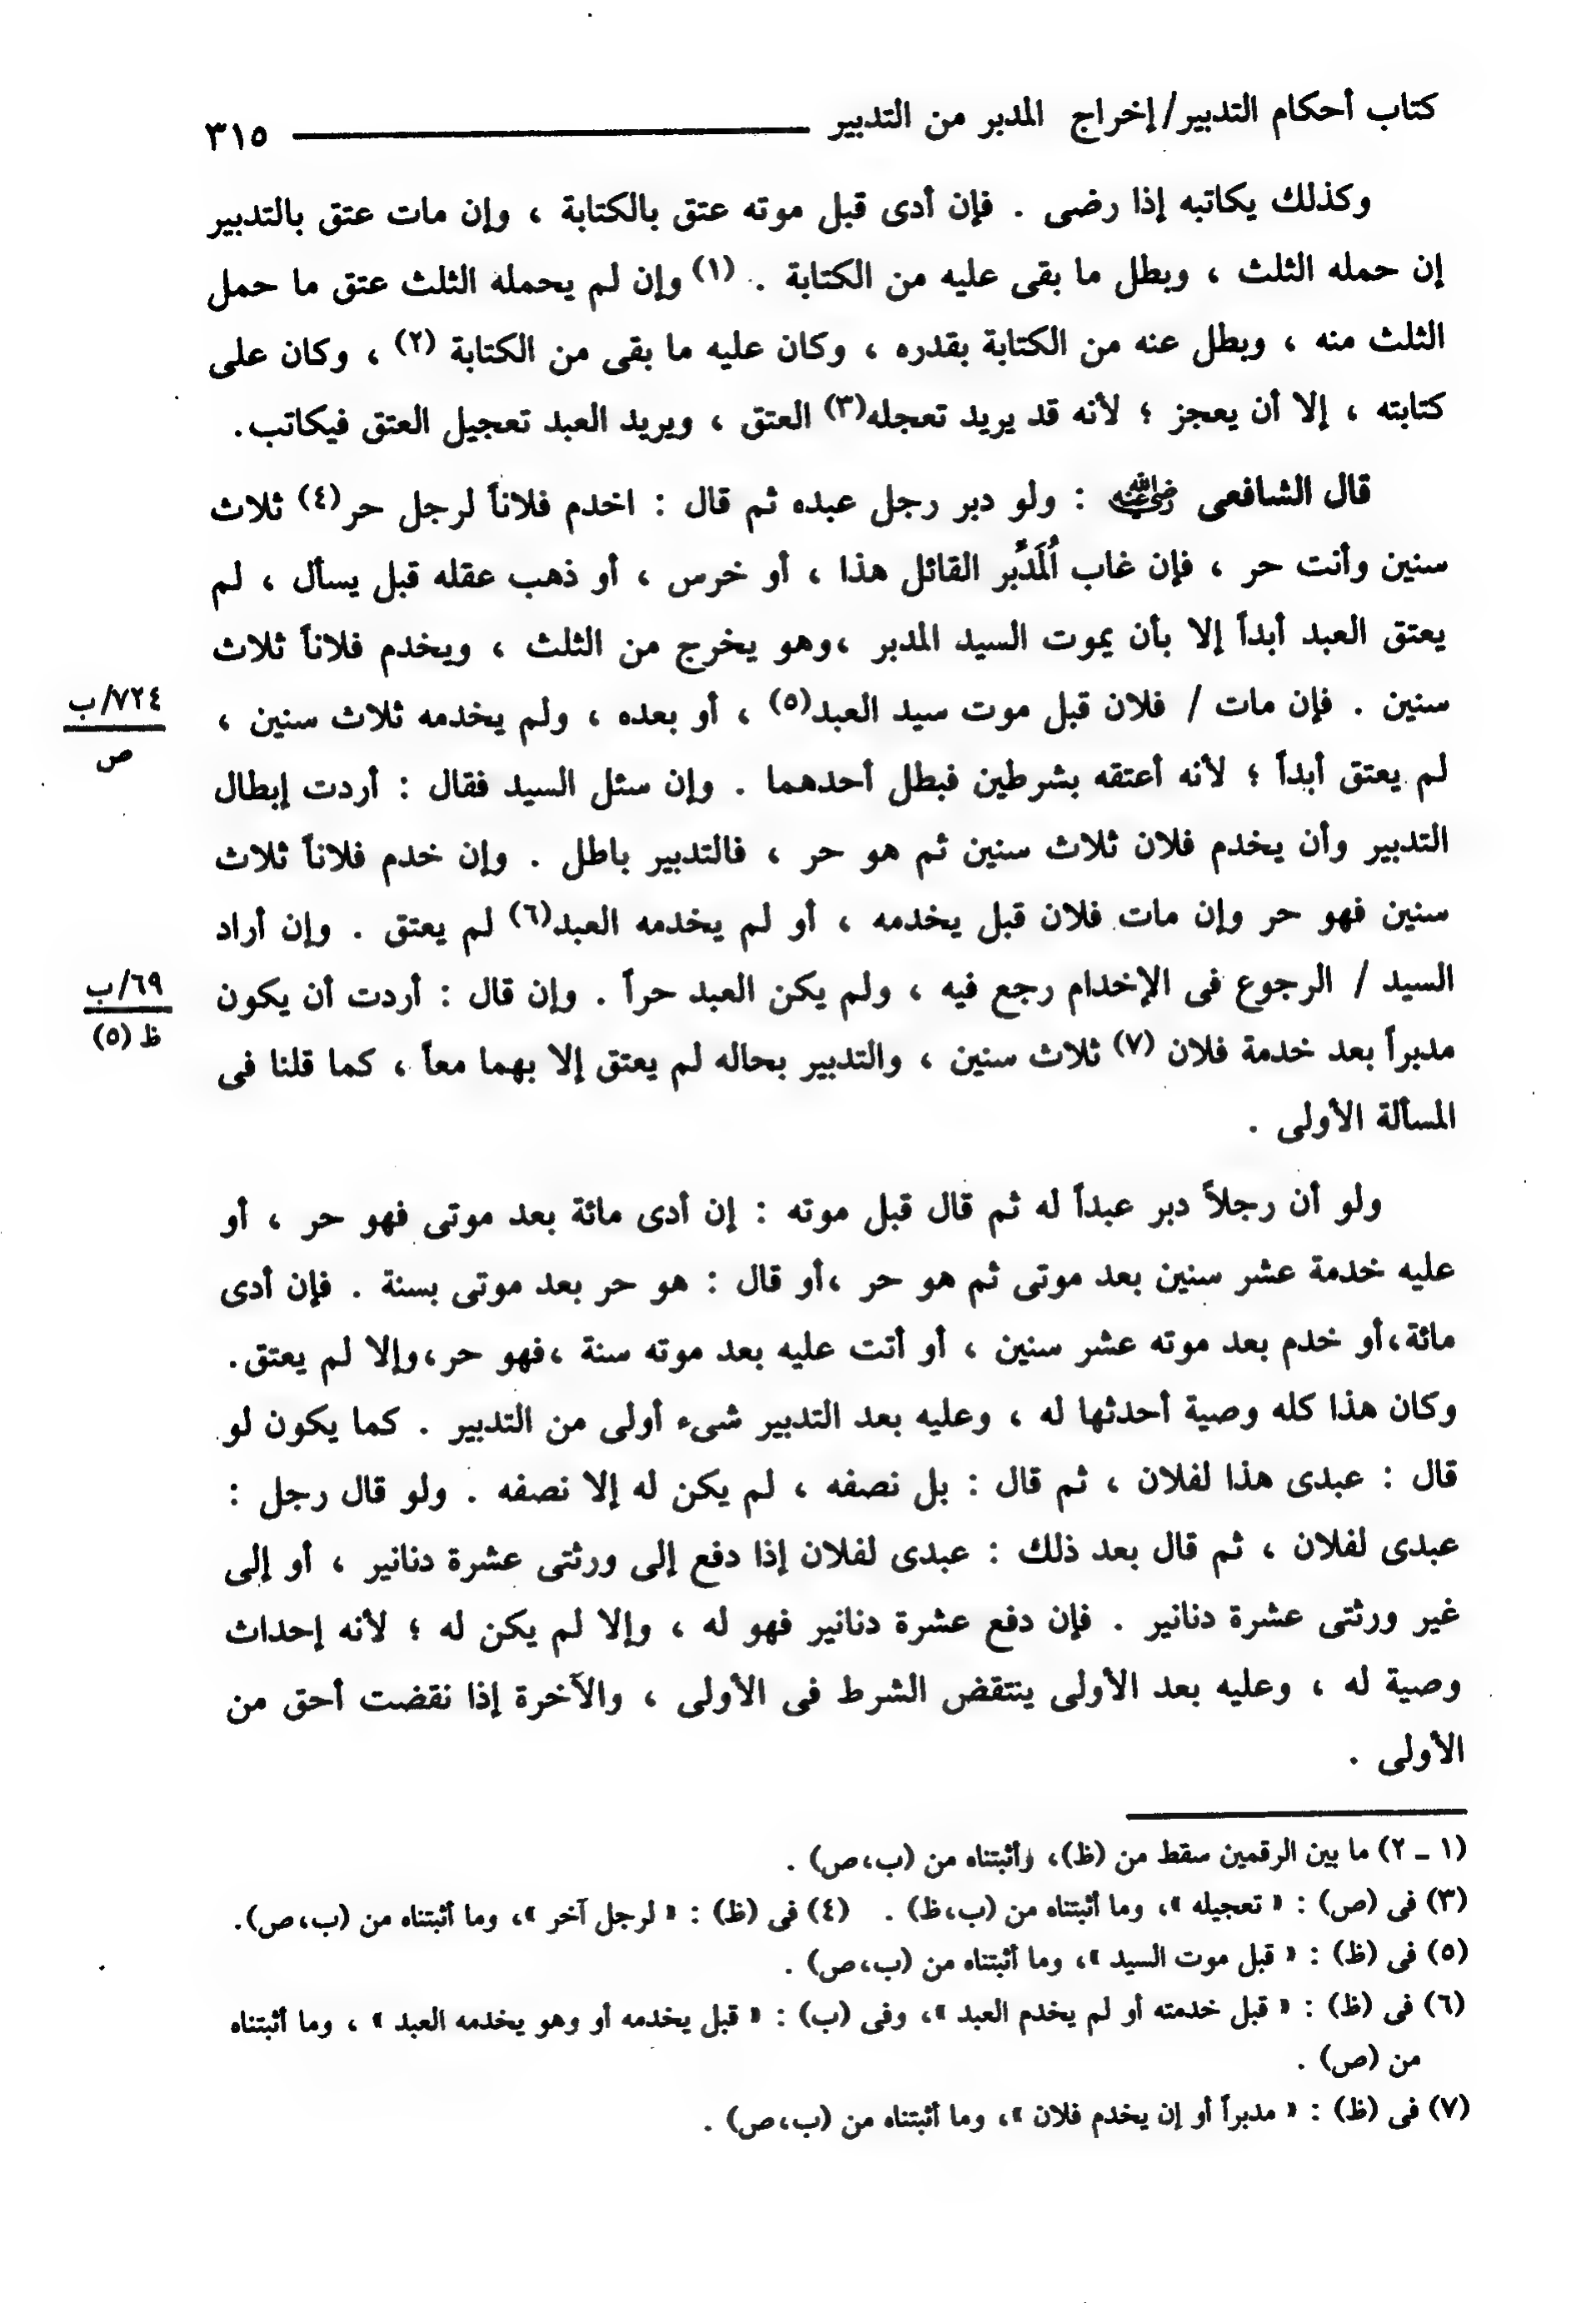 كتاب أحكام التدبير/إخراج المدبر من التدبير ٣١٥
وكذلك يكاتبه إذا رضى . فإن أدى قبل موته عتق بالكتابة ، وإن مات عتق بالتدبير
إن حمله الثلث ، وبطل ما بقى عليه من الكتابة . (١) وإن لم يحمله الثلث عتق ما حمل
الثلث منه ، وبطل عنه من الكتابة بقدره ، وكان عليه ما بقى من الكتابة (٢) ، وكان على
كتابته ، إلا أن يعجز ؛ لأنه قد يريد تعجله(٣) العتق ، ويريد العبد تعجيل العتق فيكاتب.
قال الشافعى رضي الله عنه : ولو دبر رجل عبده ثم قال : اخدم فلاناً لرجل حر(٤) ثلاث
سنين وأنت حر ، فإن غاب اُلمَدَبِّر القائل هذا ، أو خرس ، أو ذهب عقله قبل يسأل ، لم
يعتق العبد أبداً إلا بأن يموت السيد المدبر ،وهو يخرج من الثلث ، ويخدم فلاناً ثلاث
سنين . فإن مات / فلان قبل موت سيد العبد(٥) ، أو بعده ، ولم يخدمه ثلاث سنين ،
٧٢٤/ب
ص
لم يعتق أبداً ؛ لأنه أعتقه بشرطين فبطل أحدهما . وإن سئل السيد فقال : أردت إبطال
التدبير وأن يخدم فلان ثلاث سنين ثم هو حر ، فالتدبير باطل . وإن خدم فلاناً ثلاث
سنين فهو حر وإن مات فلان قبل يخدمه ، أو لم يخدمه العبد(٦) لم يعتق . وإن أراد
السيد / الرجوع فى الإخدام رجع فيه ، ولم يكن العبد حراً . وإن قال : أردت أن يكون
٦٩/ب
ظ (٥)
مدبراً بعد خدمة فلان (٧) ثلاث سنين ، والتدبير بحاله لم يعتق إلا بهما معاً ، كما قلنا فى
المسألة الأولى .
ولو أن رجلاً دبر عبداً له ثم قال قبل موته : إن أدى مائة بعد موتى فهو حر ، أو
عليه خدمة عشر سنين بعد موتى ثم هو حر ،أو قال : هو حر بعد موتى بسنة . فإن أدى
مائة،أو خدم بعد موته عشر سنين ، أو أتت عليه بعد موته سنة ،فهو حر،وإلا لم يعتق.
وكان هذا كله وصية أحدثها له ، وعليه بعد التدبير شىء أولى من التدبير . كما يكون لو
قال : عبدى هذا لفلان ، ثم قال : بل نصفه ، لم يكن له إلا نصفه . ولو قال رجل :
عبدى لفلان ، ثم قال بعد ذلك : عبدى لفلان إذا دفع إلى ورثتى عشرة دنانير ، أو إلى
غير ورثتى عشرة دنانير . فإن دفع عشرة دنانير فهو له ، وإلا لم يكن له ؛ لأنه إحداث
وصية له ، وعليه بعد الأولى ينتقض الشرط فى الأولى ، والآخرة إذا نقضت أحق من
الأولى .
(١ ـ ٢) ما بين الرقمين سقط من (ظ)، وأثبتناه من (ب،ص) .
(٣) فى (ص) : « تعجيله »، وما أثبتناه من (ب،ظ) . (٤) فى (ظ) : « لرجل آخر »، وما أثبتناه من (ب،ص).
(٥) فى (ظ) : « قبل موت السيد »، وما أثبتناه من (ب،ص) .
(٦) فى (ظ) : « قبل خدمته أو لم يخدم العبد »، وفى (ب) : « قبل يخدمه أو وهو يخدمه العبد » ، وما أثبتناه
من (ص) .
(٧) فى (ظ) : « مدبراً أو إن يخدم فلان »، وما أثبتناه من (ب،ص) .